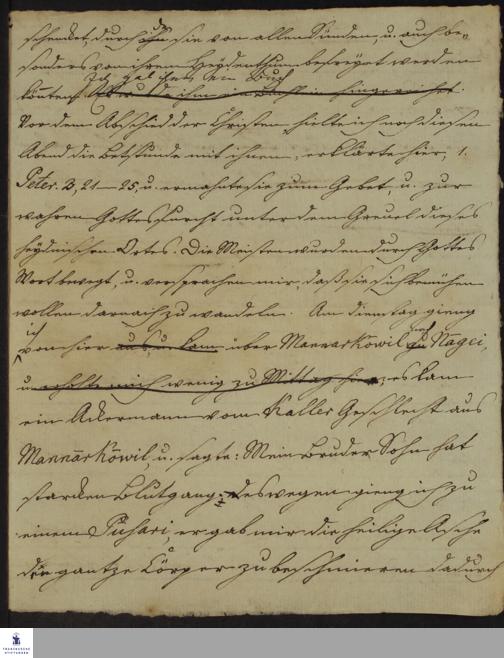 schencket, durch den sie von allen Sünden, u. auch be-
sonders von ihrem Heydenthum befreyet werden
könten. Ich gab ihm ein Buch
Vor dem Abschied der Christen hielt ich noch diesen
Abend die Betstunde mit ihnen, erklärte hier, 1.
Peter. 3, 21-25, u. ermahnte sie zum Gebet, u. zur
wahren Gottesfurcht unter dem Greuel dieses
heydnischen Ortes. Die Meisten wurden durch Gottes
Wort bewegt, u. versprachen mir, daß sie sich bemühen
wollen darnach zu wandeln. Am Dienstag gieng
ich von hier aus, u. kam über Mannarkowil nach Nagei,
u. erholte mich wenig zu Mittag hier, es kam
ein Ackermann vom Kaller Geschlecht aus
Mannārkōwil, u. sagte: Mein Bruder Sohn hat
starcken Blutgang. Deswegen gieng ich zu
einem Pusari, er gab mir die heilige Asche
den gantze Cörper zu beschmieren dadurch
FRANCKESCHE
STIFTUNGEN